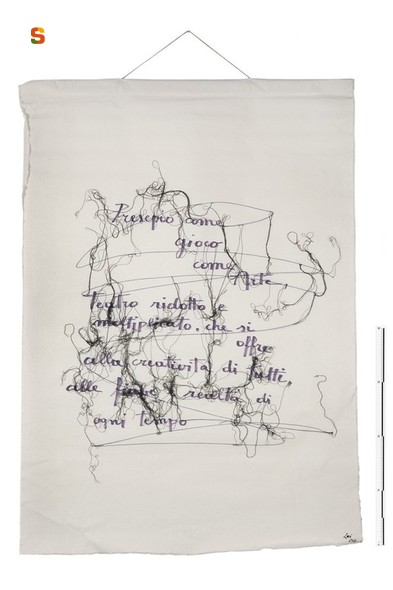 Presepio come
gioco
come Arte
teatro ridotto e
moltiplicato, che si
offre
alla creatività di tutti,
alle fiabe e realtà di
ogni tempo